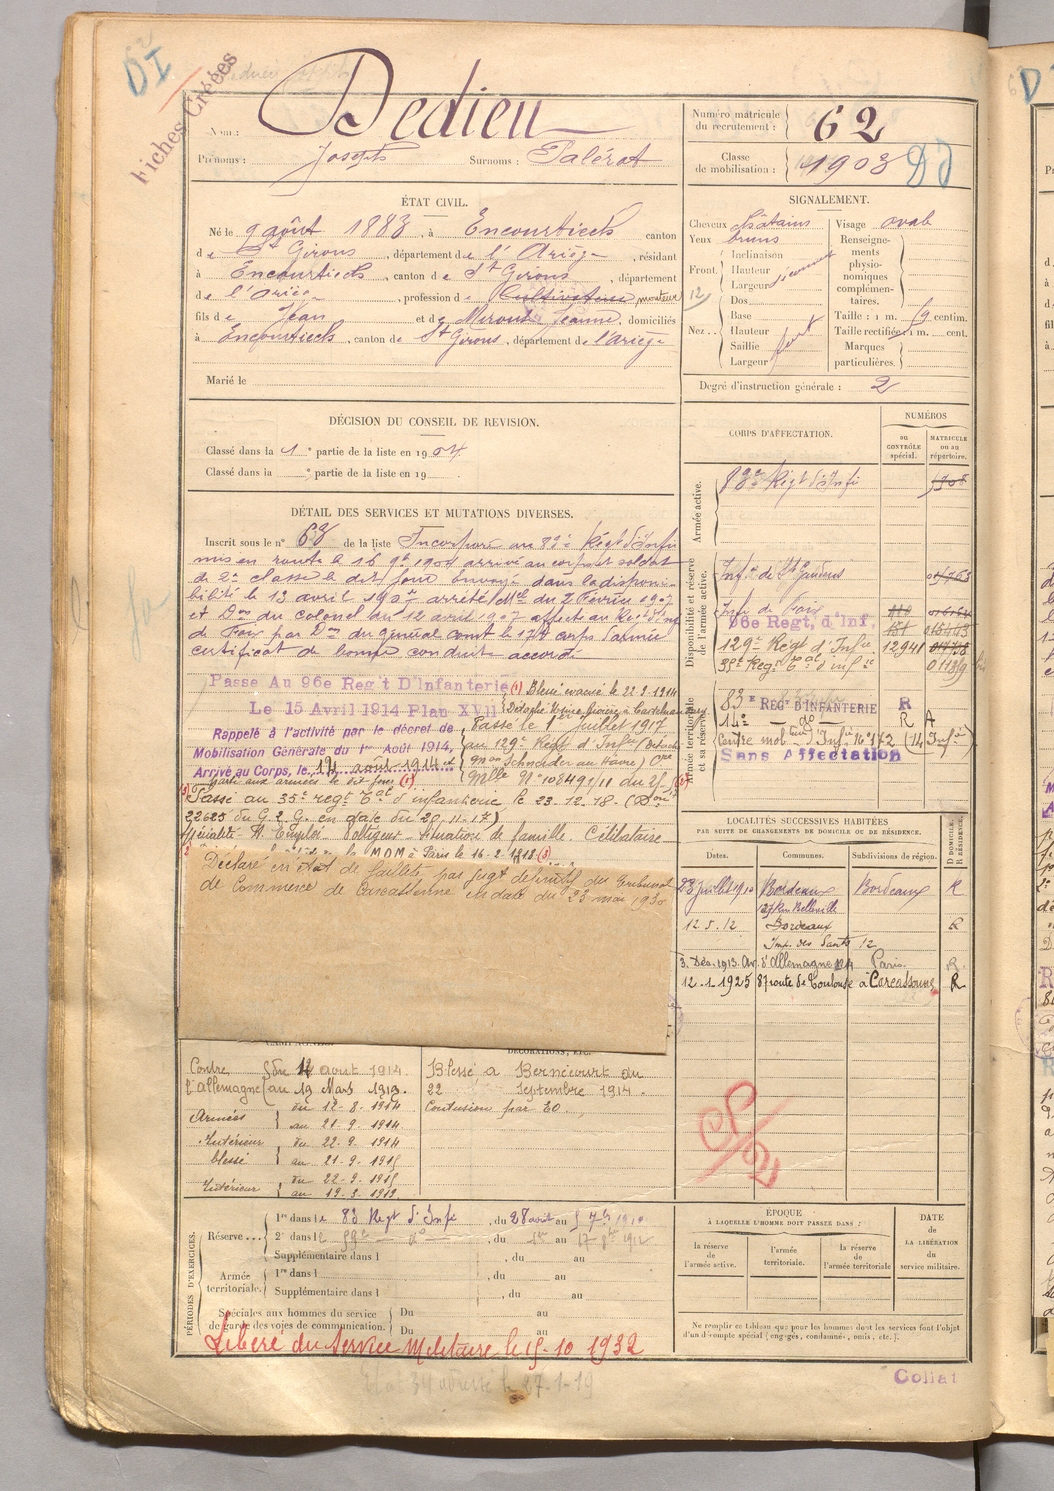 DJ
Fiches Créées
Nom : Dedieu
Prénoms : Joseph Surnoms : Palérat
Numéro matricule du recrutement : 62
Classe de mobilisation : 1903
ÉTAT CIVIL.
Né le 9 août 1883, à Encourtiech canton
de St Girons, département de l'Ariège, résidant
à Encourtiech, canton de St Girons, département
de l'Ariège, profession de Cultivateur monteur
fils de Jean et de Jeanne, domiciliés
à Encourtiech, canton de St Girons, département de l'Ariège
Marié le
SIGNALEMENT.
Cheveux châtains
Yeux bruns
Front.
Inclinaison
Hauteur
Largeur
Nez..
Dos
Base
Hauteur
Saillie
Largeur fort
Visage ovale
Renseignements physionomiques complémentaires.
Taille : 1 m. centim.
Taille rectifiée : 1 m. cent.
Marques particulières.
Degré d'instruction générale : 2
DÉCISION DU CONSEIL DE REVISION.
Classé dans la 1e partie de la liste en 1904
Classé dans la e partie de la liste en 19
CORPS D'AFFECTATION.
NUMÉROS
au CONTRÔLE spécial.
MATRICULE ou au répertoire.
Armée active.
83e Régt d'Infie
Disponibilité et réserve de l'armée active.
Infie de St Gaudens
Infie de Foix
96e Regt. d'Inf.
129e Régt d'Infie 12941
35e Regt d'infie
Armée territoriale et sa réserve.
83e REGt D'INFANTERIE R
14e do R A
Centre mob d'Infie No 172 (14 Infie)
Sans Affectation
DÉTAIL DES SERVICES ET MUTATIONS DIVERSES.
Inscrit sous le n° 68 de la liste Incorporé au 83e Régt d'Infie
mis en route le 16 9bre 1904 arrivé au corps et soldat
de 2e classe le dit jour envoyé dans la disponi-
bilité le 13 avril 1907 arrêté Mel du 2 Février 1907
et Don du colonel du 12 avril 1907 affecté au Régt d'Inf
de Foix par Don du général comt le 17e corps d'armée
certificat de bonne conduite accordé
Passe Au 96e Regt D'Infanterie (1) Blessé évacué le 22.9.1914
Le 15 Avril 1914 Plan XVII
Passé le 1er juillet 1917
Rappelé à l'activité par le décret de
au 129e Régt d'Infie (Détaché
Mobilisation Générale du 1er Août 1914,
Mon Schneider au Havre)
Arrivé au Corps, le 12 août 1914 et
Mlle No 108491/11 du 25
parti aux armées le dit jour (1)
Passé au 35e regt d'infanterie le 23.12.18. (Don
22625 du G.Q.G. en date du 20.11.17)
Situation de famille. Célibataire
MDM à Paris le 16-2-1918 (3)
Déclaré en état de faillite par jugt définitif du tribunal
de Commerce de Carcassonne en date du 23 mai 1930
LOCALITÉS SUCCESSIVES HABITÉES
PAR SUITE DE CHANGEMENTS DE DOMICILE OU DE RÉSIDENCE.
Dates. Communes. Subdivisions de région. D DOMICILE. R RÉSIDENCE.
23 juillet 1910 Bordeaux Bordeaux R
Rue Belleville
12.5.12 Bordeaux R
Imp. des Sants 12
3. Déc. 1913. Av. d'Allemagne Paris. R.
12.1.1925 87 route de Toulouse à Carcassonne R
DÉCORATIONS, ETC.
Contre l'Allemagne
du 12 août 1914.
au 19 Mars 1919.
Armées
du 12.8.1914
au 21.9.1914
Intérieur blessé
du 22.9.1914
au 21.9.1915
Intérieur
du 22.9.1915
au 19.3.1919.
Blessé à Bernécourt au
22 Septembre 1914.
Contusion par EO.
PÉRIODES D'EXERCICES.
Réserve...
1re dans le 83 Régt d'Infie, du 28 août au 7bre 1910
2e dans l , du 1er au 17
Supplémentaire dans l , du au
Armée territoriale.
1re dans l , du au
Supplémentaire dans l , du au
Spéciales aux hommes du service de garde des voies de communication.
Du au
Du au
Libéré du Service Militaire le 15-10 1932
ÉPOQUE
À LAQUELLE L'HOMME DOIT PASSER DANS :
la réserve de l'armée active.
l'armée territoriale.
la réserve de l'armée territoriale
DATE de LA LIBÉRATION du service militaire.
Ne remplir ce tableau que pour les hommes dont les services font l'objet
d'un décompte spécial (engagés, condamnés, omis, etc.).
le 27-1-19